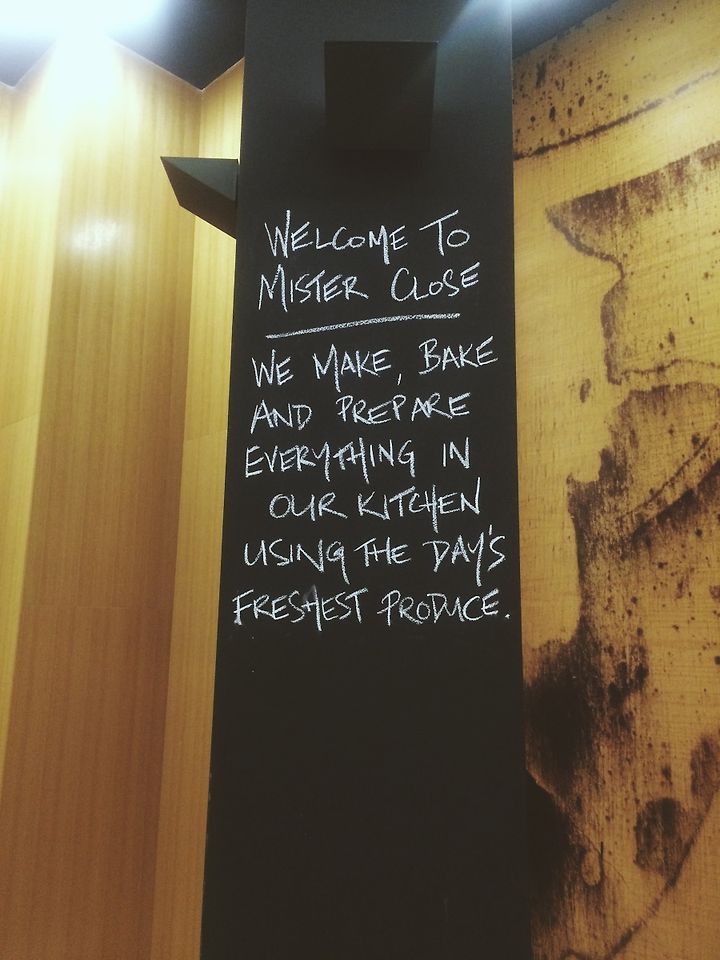 WELCOME TO
MISTER CLOSE
WE MAKE, BAKE
AND PREPARE
EVERYTHING IN
OUR KITCHEN
USING THE DAY'S
FRESHEST PRODUCE.